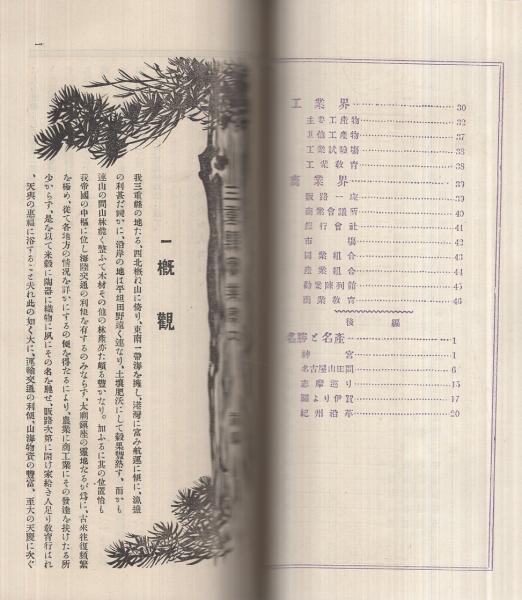 工業界 30
主要工產物 32
其他工產物 37
工業試驗場 38
工業敎育 38
商業界 39
販路一斑 39
商業會議所 40
銀行會社 41
市場 42
同業組合 43
產業組合 44
勸業陳列館 45
商業敎育 46
後編
名勝と名產 1
神宮 1
名古屋山田間 6
志摩巡り 15
關より伊賀 17
紀州沿革 20
一 槪觀
我三重縣の地たる、西北槪ね山に倚り、東南一帶海を擁し、港灣に富み航運に便に、漁鹽
の利甚だ饒かに、沿岸の地は平坦田野遠く連なり、土壤肥沃にして穀果豐熟す、而かも
連山の間山林能く整ふて木材その他の林產亦た頗る豐かなり。加ふるに其の位置恰も
我帝國の中樞に位し海陸交通の利便を有するのみならず、大廟鎭座の靈地たるが爲に、古來往復頻繁
を極め、從て各地方の情況を詳かにするの便を得たるにより、農業に商工業にその發達を扶けたる所
少からず、是を以て米穀に陶器に織物に夙にその名を馳せ、販路次第に開け家給き人足り敎育行はれ
、天與の惠福に浴すること夫れ此の如く大に、運輸交通の利便、山海物資の豐富、至大の天慶に次ぐ
一